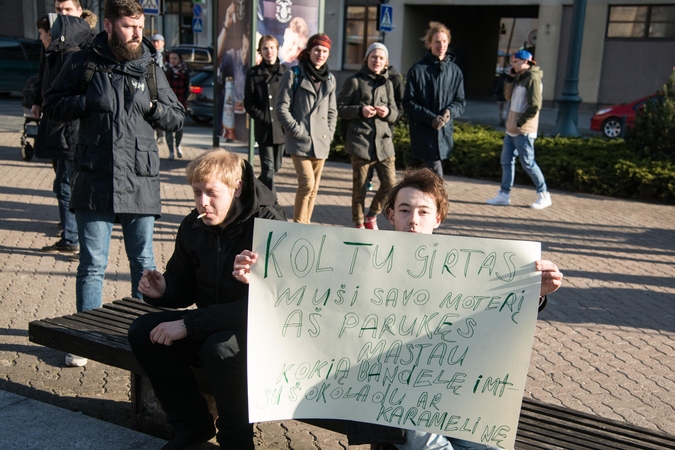 KOL TU GIRTAS
MUŠI SAVO MOTERĮ
AŠ PARUKĘS
MASTAU
KOKIĄ BANDELĘ IMT
SU ŠOKOLADU AR
KARAMELINĘ